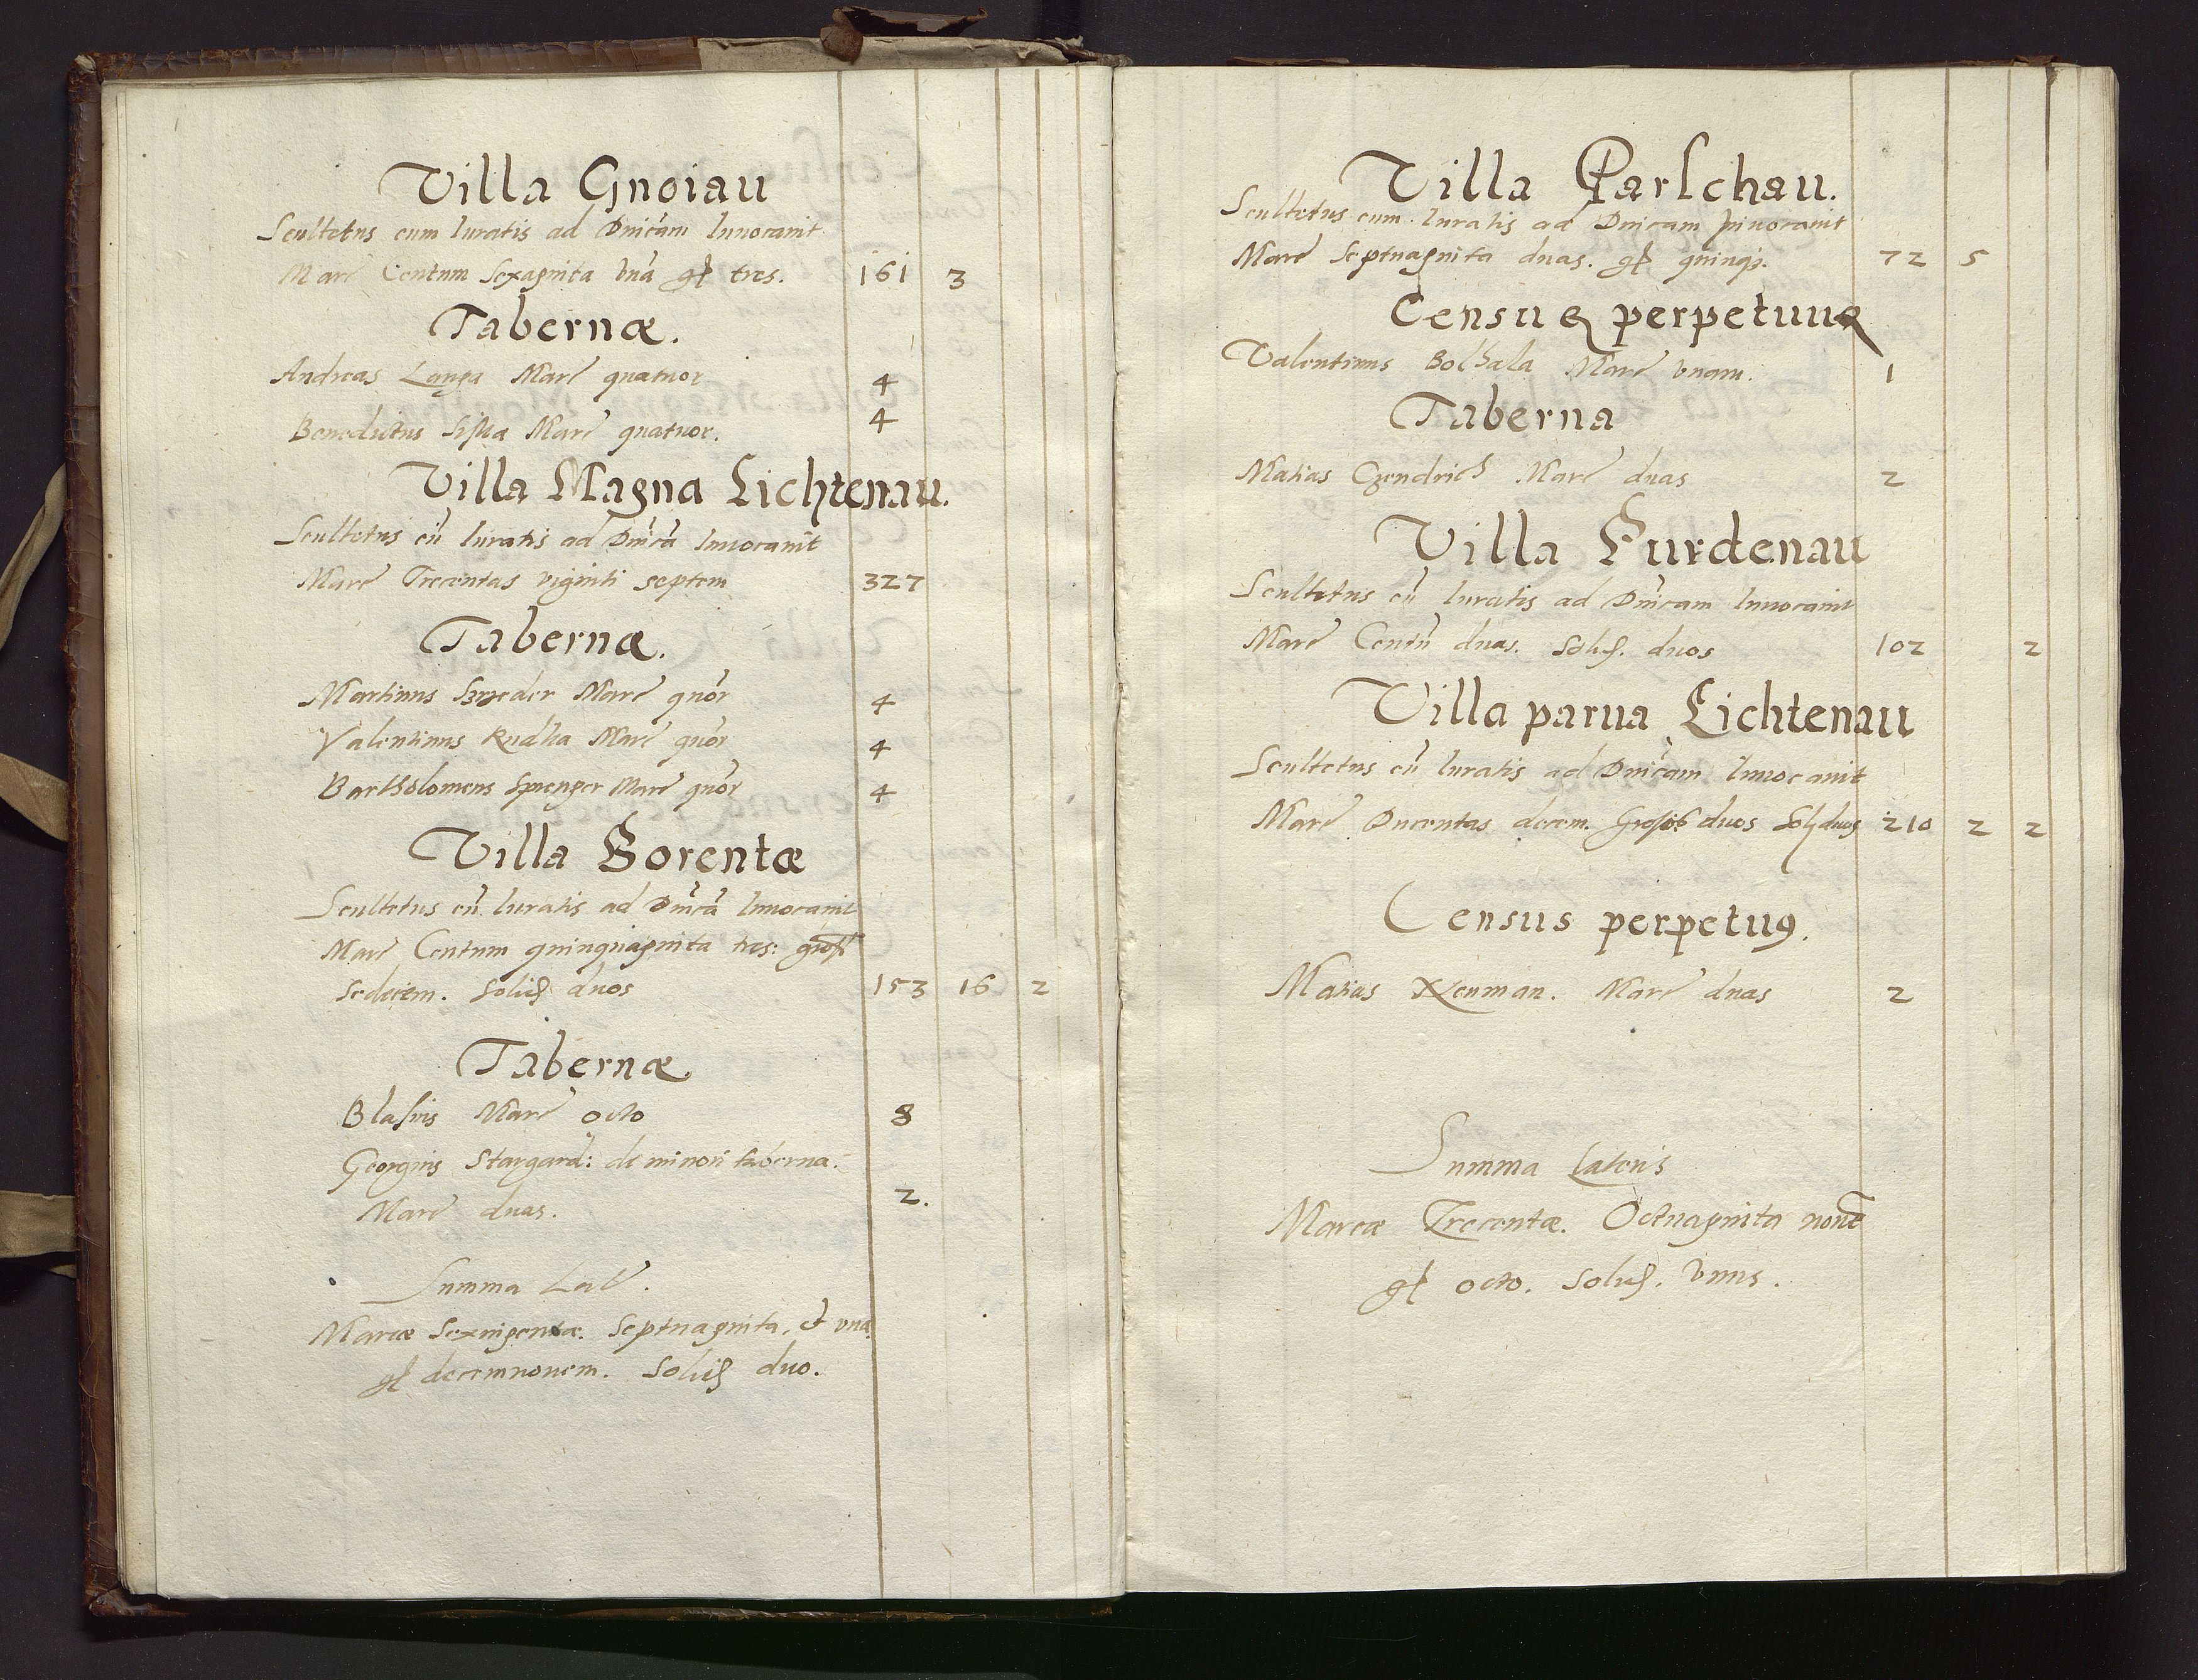 Villa Gnoiau
Scultetus cum Iuratis ad Dnicam Inuocauit
Marc Centum Sexaginta vna gs tres. 161 3
Tabernæ.
Andreas Langa Marc quatuor 4
Benedictus Marc quatuor. 4
Villa Magna Lichtenau.
Scultetus cū Iuratis ad Dnicā Inuocauit
Marc Trecentas viginti septem 327
Tabernæ.
Martinus Marc quor 4
Valentinus Marc quor 4
Bartholomeus Sprenger Marc quor 4
Villa Gorentæ
Scultetus cū Iuratis ad Dnicā Inuocauit
Marc Centum quinquaginta tres: gross
sedecem. Solid duos 153 16 2
Tabernæ
Blasius Marc octo 8
Georgius Stargard: de minori taberna.
Marc duas. 2.
Summa Lat.
Marcæ Sexingentæ. Septuaginta, et vna
gs decemnouem. Solid duo.
Villa Parschau.
Scultetus cum Iuratis ad Dnicam Inuocauit
Marc Septuaginta duas. gs quinq3. 72 5
Census perpetuus
Valentinus Bolhala Marc vnam. 1
Taberna
Matias Czendrich Marc duas 2
Villa Kurdenau
Scultetus cū Iuratis ad Dnicam Inuocauit
Marc Centū duas. Solid. duos 102 2
Villa parua Lichtenau
Scultetus cū Iuratis ad Dnicam Inuocauit
Marc Ducentas decem. Gross duos Sold duos 210 2 2
Census perpetuus.
Matias Neuman. Marc duas 2
Summa Lateris
Marcæ Trecentæ. Octuaginta noue
gs octo. Solid. vnus.